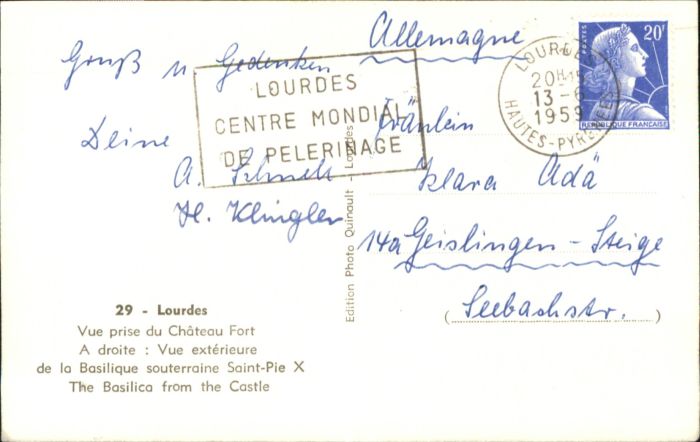 Allemagne
Gruß u. Gedenken
Deine
A. Schnell
H. Klingler
LOURDES
CENTRE MONDIAL
DE PELERINAGE
LOURDES
20H15
13-6
1959
HAUTES-PYRENEES
POSTES
20F
REPUBLIQUE FRANÇAISE
Fräulein
Klara Adä
14a Geislingen-Steige
(Seebachstr.)
Edition Photo Quinault - Lourdes
29 - Lourdes
Vue prise du Château Fort
A droite : Vue extérieure
de la Basilique souterraine Saint-Pie X
The Basilica from the Castle